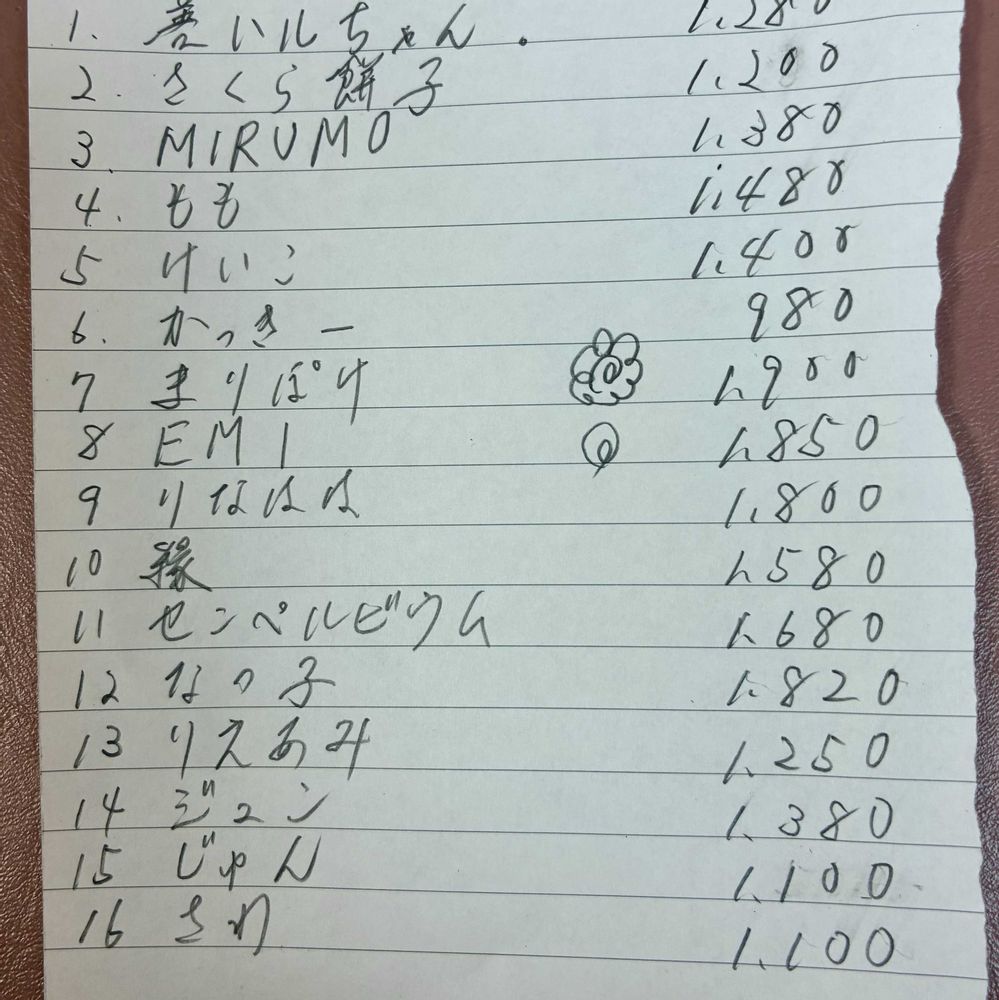 1. 善いルちゃん. 1,280
2. さくら餅子 1,200
3. MIRUMO 1,380
4. もも 1,480
5 けいこ 1,400
6. かっきー 980
7 まりぽけ 1,900
8 EMI 1,850
9 りなはは 1,800
10 縁 1,580
11 センペルビウム 1,680
12 なっ子 1,820
13 りえあみ 1,250
14 ジュン 1,380
15 じゃん 1,100
16 さわ 1,100